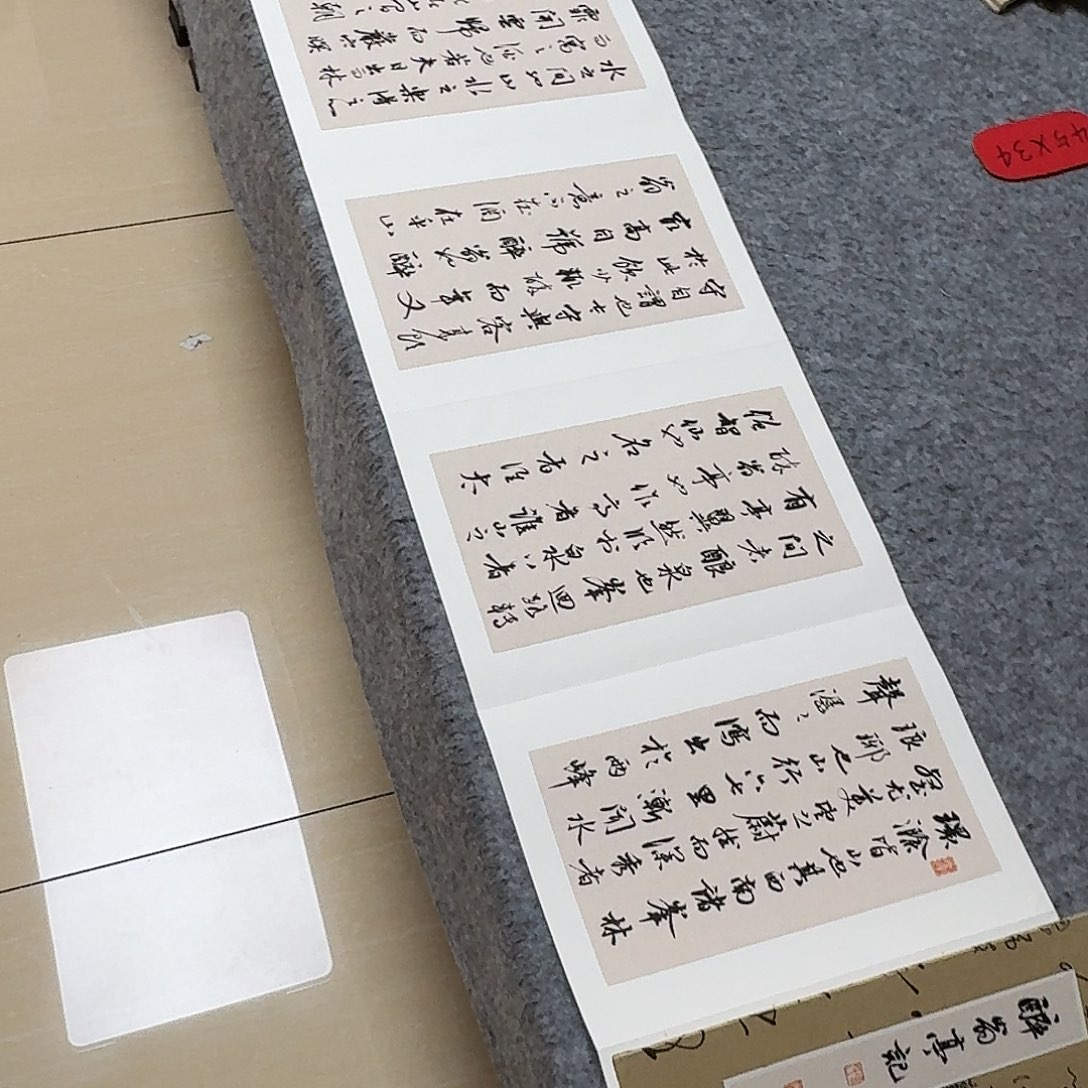 醉翁亭記
環滁皆山也其西南諸峯林
壑尤美望之蔚然而深秀者
琅琊也山行六七里漸聞水
聲潺々而瀉出於兩峰
之間者釀泉也峯迴路轉
有亭翼然臨於泉上者
醉翁亭也作亭者誰山之
僧智仙也名之者誰太
守自謂也太守與客來飲
於此飲少輒醉而年又
最高自號醉翁也醉
翁之意不在酒在乎山
水之間也山水之樂得之心
而寓之酒也若夫日出而林
霏開雲歸而巖穴暝
45X34